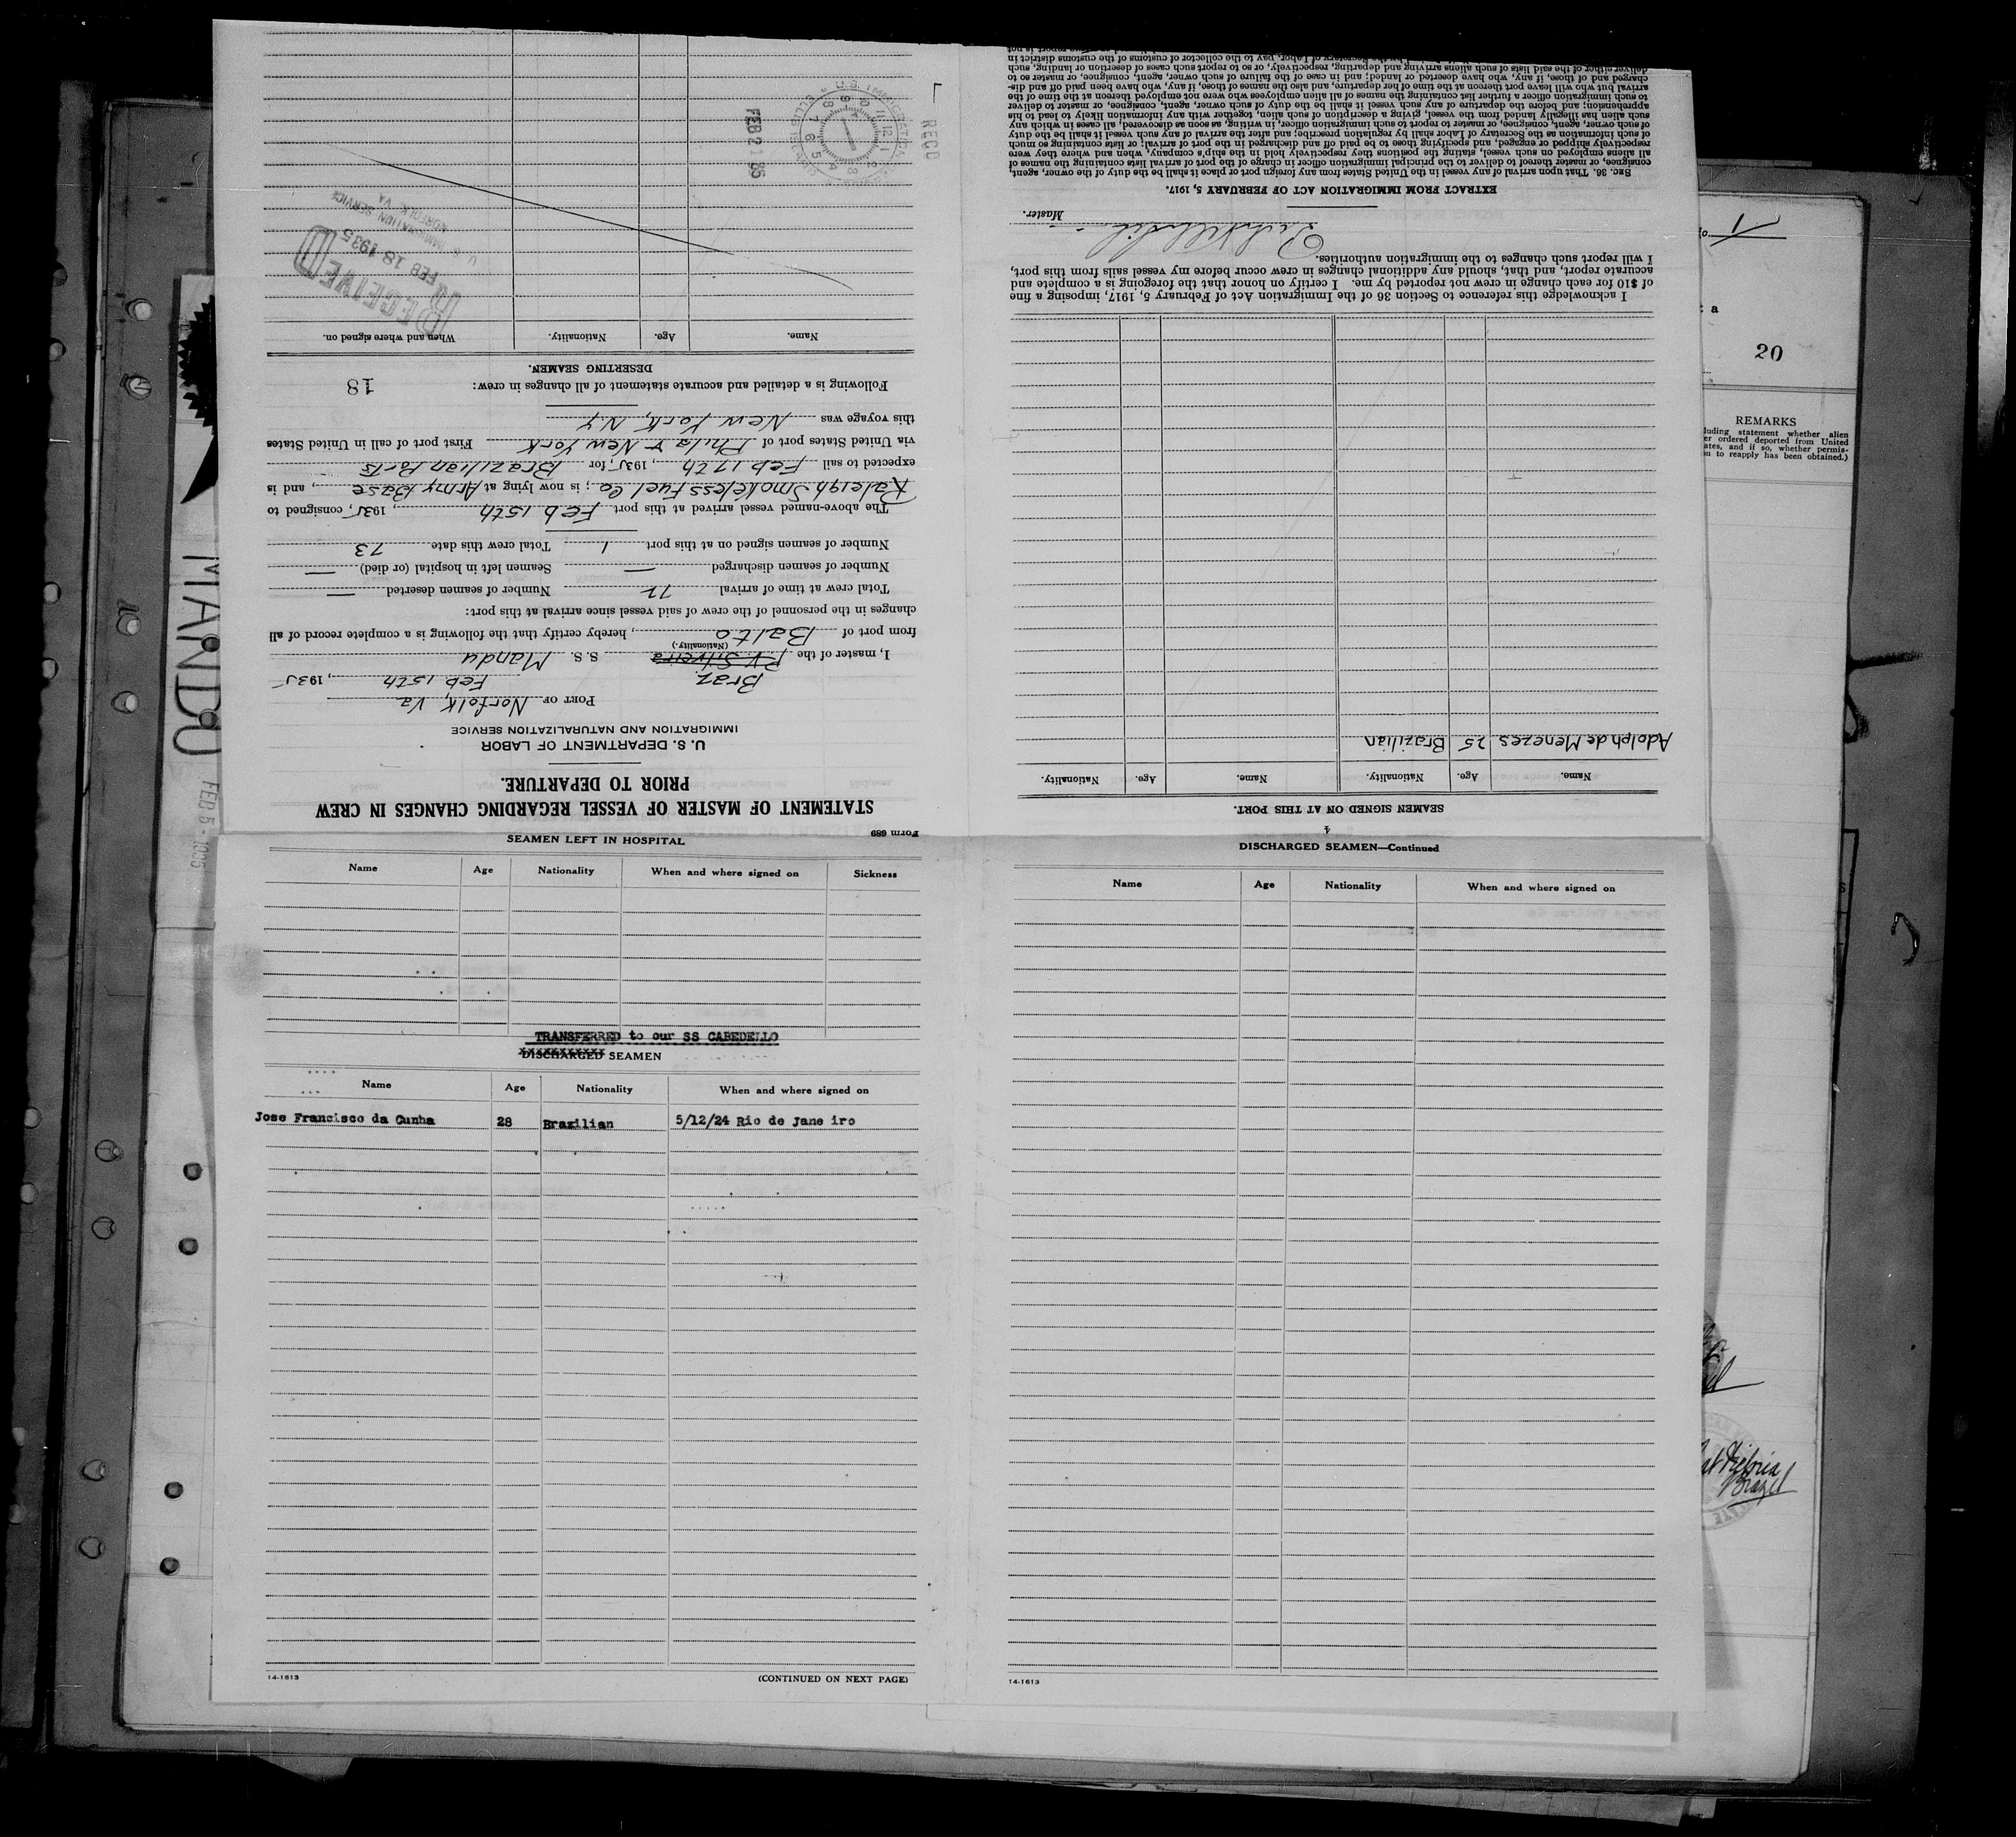 Form 689
STATEMENT OF MASTER OF VESSEL REGARDING CHANGES IN CREW
PRIOR TO DEPARTURE.
U. S. DEPARTMENT OF LABOR
IMMIGRATION AND NATURALIZATION SERVICE
PORT OF Norfolk, Va
Feb 15th, 1935
Braz
I, master of the R.V. Silveira S. S. Mandu
(Nationality.)
from port of Balto, hereby certify that the following is a complete record of all
changes in the personnel of the crew of said vessel since arrival at this port:
Total crew at time of arrival 72 Number of seamen deserted —
Number of seamen discharged — Seamen left in hospital (or died) —
Number of seamen signed on at this port 1 Total crew this date 73
The above-named vessel arrived at this port Feb 15th, 1935, consigned to
Raleigh Smokeless Fuel Co; is now lying at Army Base, and is
expected to sail Feb 17th, 1935, for Brazilian Ports
via United States port of Phila & New York First port of call in United States
this voyage was New York, N.Y
Following is a detailed and accurate statement of all changes in crew: 18
DESERTING SEAMEN.
Name. Age. Nationality. When and where signed on.
RECEIVED
FEB 18 1935
U. S. IMMIGRATION SERVICE
NORFOLK, VA
FEB 21 35
RECD
SEAMEN SIGNED ON AT THIS PORT.
Name. Age. Nationality. Name. Age. Nationality.
Adolph de Menezes 25 Brazilian
I acknowledge this reference to Section 36 of the Immigration Act of February 5, 1917, imposing a fine
of $10 for each change in crew not reported by me. I certify on honor that the foregoing is a complete and
accurate report, and that, should any additional changes in crew occur before my vessel sails from this port,
I will report such changes to the immigration authorities.
Master.
EXTRACT FROM IMMIGRATION ACT OF FEBRUARY 5, 1917.
SEC. 36. That upon arrival of any vessel in the United States from any foreign port or place it shall be the duty of the owner, agent,
consignee, or master thereof to deliver to the principal immigration officer in charge of the port of arrival lists containing the names of
all aliens employed on such vessel, stating the positions they respectively hold in the ship's company, when and where they were
respectively shipped or engaged, and specifying those to be paid off and discharged in the port of arrival; or lists containing so much
of such information as the Secretary of Labor shall by regulation prescribe; and after the arrival of any such vessel it shall be the duty
of such owner, agent, consignee, or master to report to such immigration officer, in writing, as soon as discovered, all cases in which any
such alien has illegally landed from the vessel, giving a description of such alien, together with any information likely to lead to his
apprehension; and before the departure of any such vessel it shall be the duty of such owner, agent, consignee, or master to deliver
to such immigration officer a further list containing the names of all alien employees who were not employed thereon at the time of the
arrival but who will leave port thereon at the time of her departure, and also the names of those, if any, who have been paid off and dis-
charged and of those, if any, who have deserted or landed; and in case of the failure of such owner, agent, consignee, or master so to
deliver either of the said lists of such aliens arriving and departing, respectively, or so to report such cases of desertion or landing, such
SEAMEN LEFT IN HOSPITAL
Name Age Nationality When and where signed on Sickness
TRANSFERRED to our SS CABEDELLO
DISCHARGED SEAMEN
Name Age Nationality When and where signed on
Jose Francisco da Cunha 28 Brazilian 5/12/24 Rio de Jane iro
14-1613 (CONTINUED ON NEXT PAGE)
4
DISCHARGED SEAMEN—Continued
Name Age Nationality When and where signed on
14-1613
MANDO
FEB 5 - 1935
1
20
REMARKS
luding statement whether alien
er ordered deported from United
ates, and if so, whether permis-
n to reapply has been obtained.)
at Victoria
Brazil